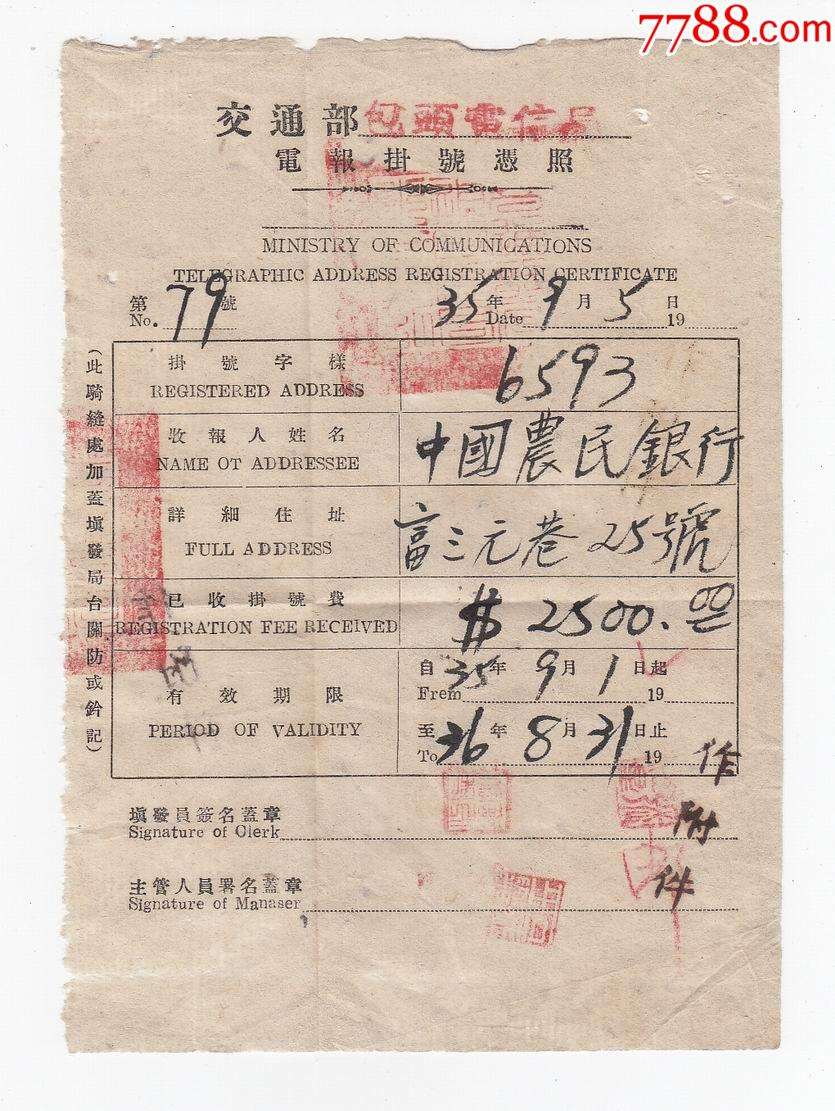 7788.com
交通部包頭電信局
電報掛號憑照
MINISTRY OF COMMUNICATIONS
TELEGRAPHIC ADDRESS REGISTRATION CERTIFICATE
第79號 35年9月5日
No. Date 19
掛號字樣 6593
REGISTERED ADDRESS
收報人姓名 中國農民銀行
NAME OT ADDRESSEE
詳細住址 富三元巷25號
FULL ADDRESS
已收掛號費 $2500.00
REGISTRATION FEE RECEIVED
自35年9月1日起
From 19
有效期限
PERIOD OF VALIDITY
至36年8月31日止
To 19
(此騎縫處加蓋塡發局台關防或鈐記)
作附件
塡發員簽名蓋章
Signature of Clerk
主管人員署名蓋章
Signature of Manaser